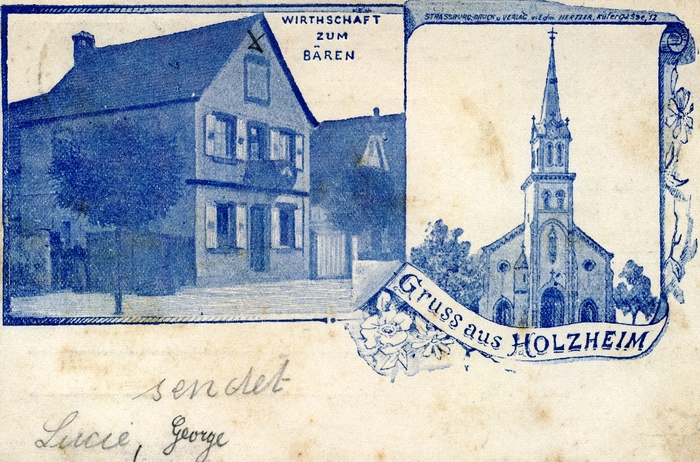 WIRTHSCHAFT
ZUM
BÄREN
STRASSBURG-DRUCK u VERLAG v.
HERTZER,
12
Gruss aus HOLZHEIM
sendet
Lucie, George